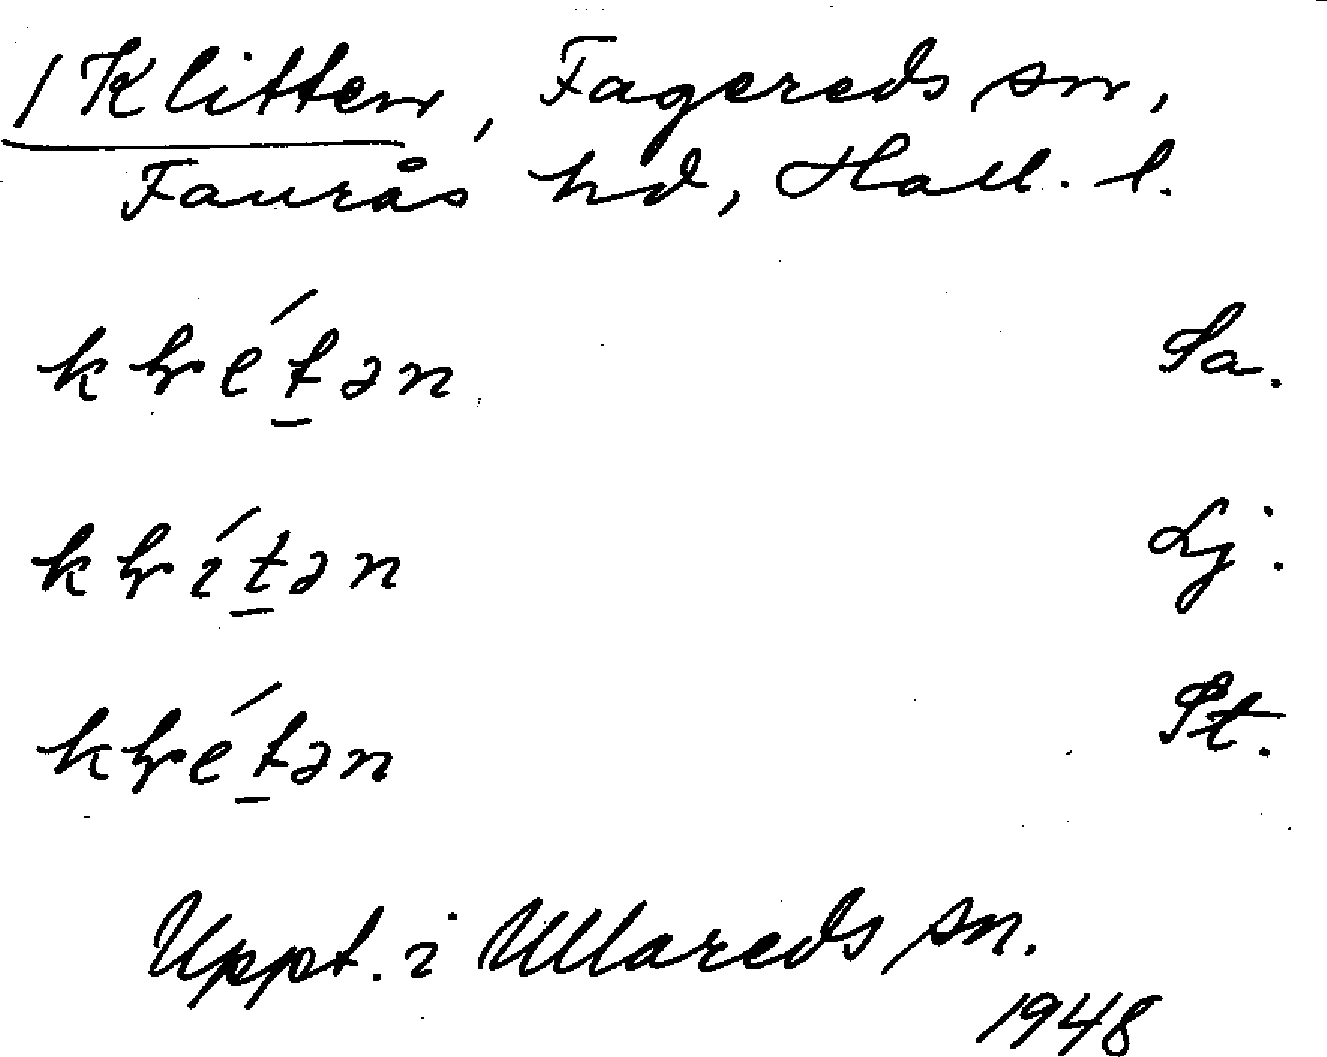 / Klitten, Fagereds sn,
Faurås hd, Hall. l.
klrétən Sa.
klrítən Lj.
klrétən St.
Uppt. i Ullareds sn.
1948